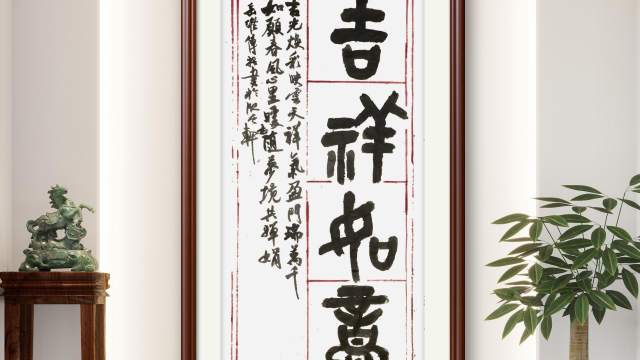 吉祥如意
吉光焕彩映雲天祥氣盈門瑞萬千
如願春風心里暖意隨夢境共婵娟
書於軒